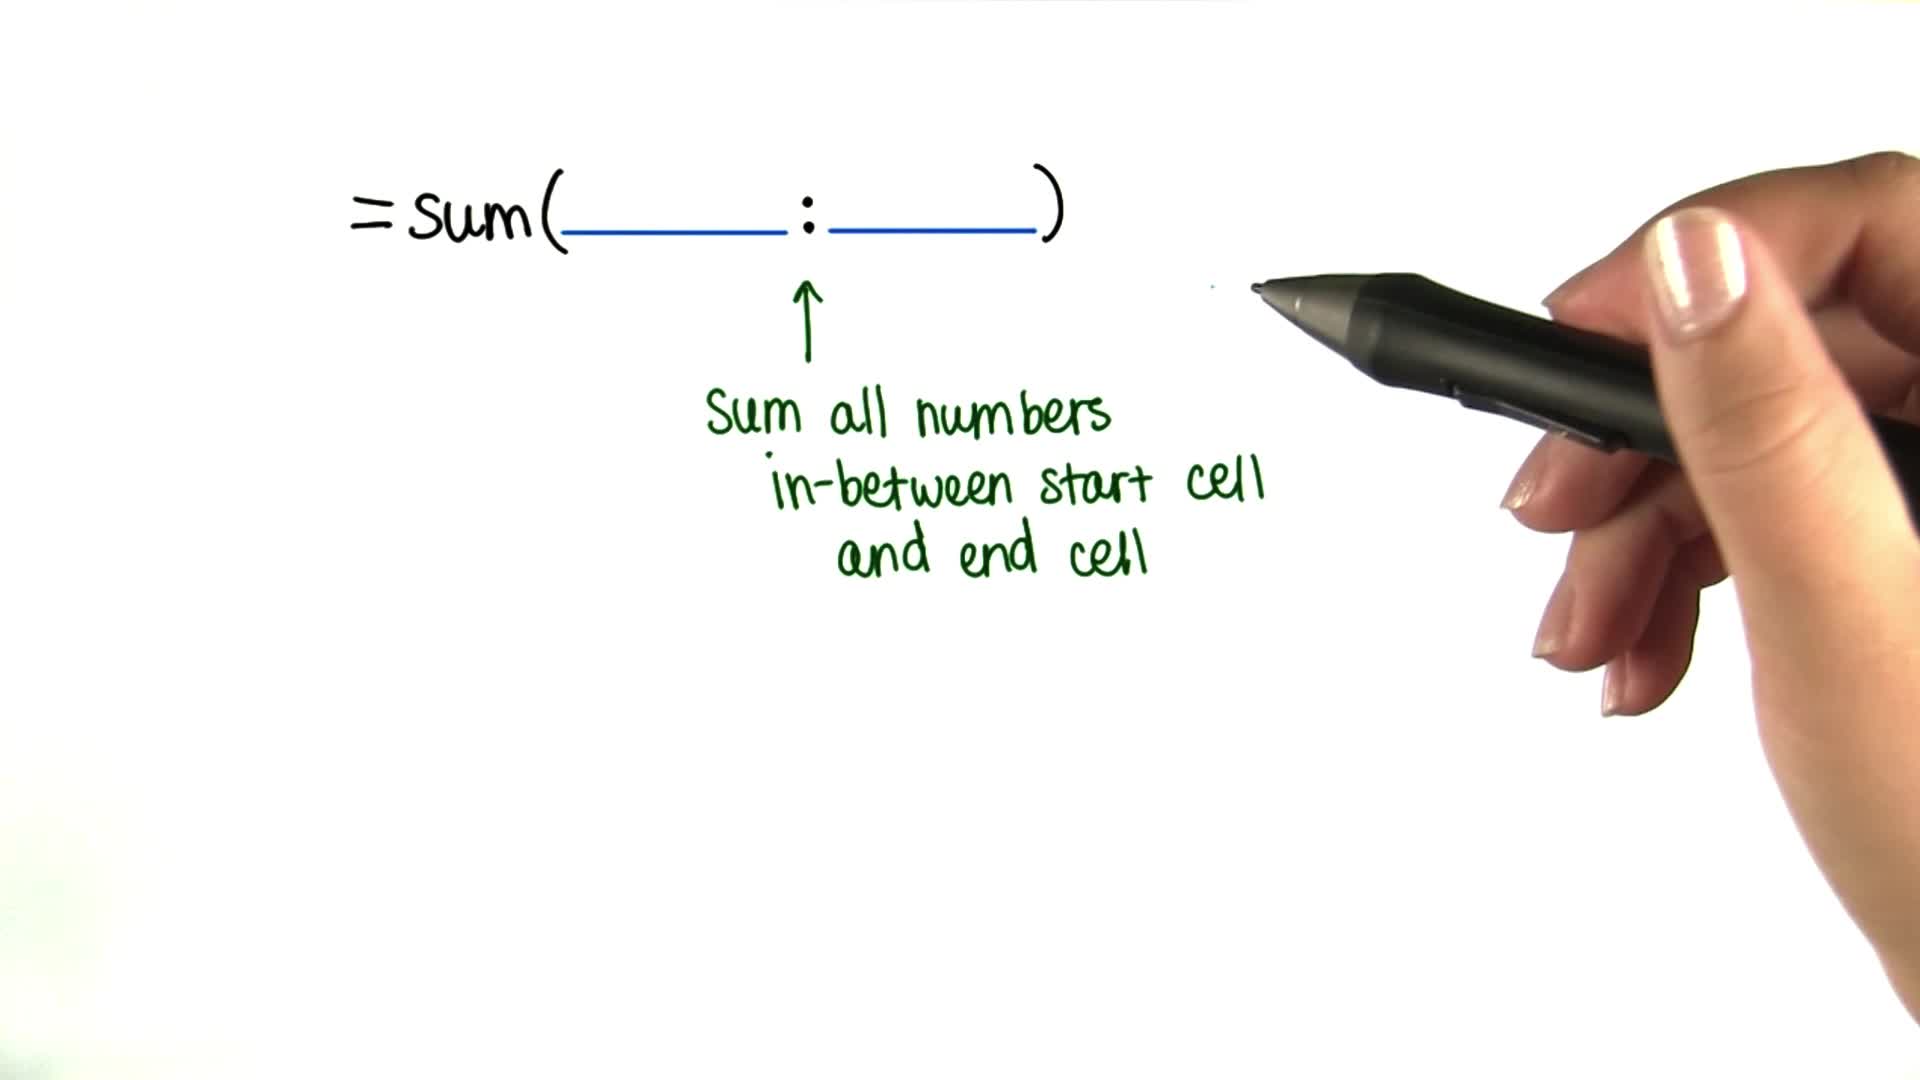 =sum(______:______)
Sum all numbers
in-between start cell
and end cell